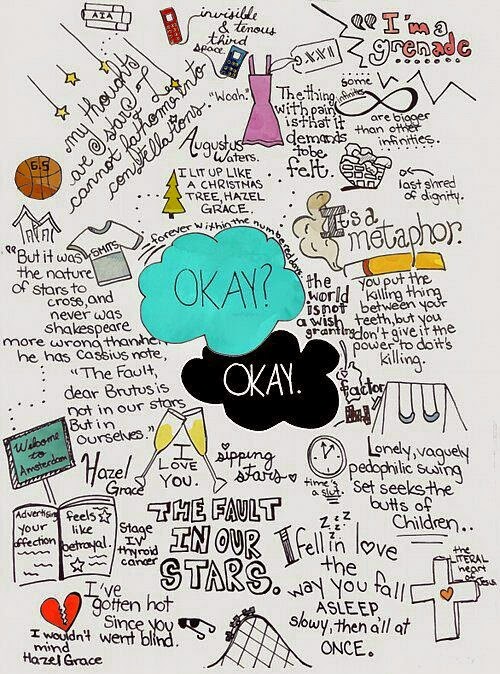 AIA
invisible
& tenous
third
space.
"I'm a
grenade
my thoughts
are @ stars @ I
cannot fathom into
constellations.
"Woah."
XXII
some
infinites
are bigger
than other
infinities.
The thing
with pain
is that it
demands
to be
felt.
Augustus
Waters.
6.5
I LIT UP LIKE
A CHRISTMAS
TREE, HAZEL
GRACE.
last shred
of dignity.
It's a
metaphor.
forever within the numbered days.
"But it was
the nature
of stars to
cross, and
never was
shakespeare
more wrong than when
he has Cassius note,
"The Fault,
dear Brutus is
not in our stars
But in
ourselves."
OKAY?
OKAY.
the
world
is not
a wish
granting
factory
you put the
killing thing
between your
teeth, but you
don't give it the
power to do it's
killing.
Welcome
to
Amsterdam
Hazel
Grace
I
LOVE
YOU.
sipping
stars
time's
a slut.
Lonely, vaguely
pedophilic swing
set seeks the
butts of
Children..
Advertising
your
affection
feels
like
betrayal.
Stage
IV
thyroid
cancer
THE FAULT
IN OUR
STARS.
z z z z
I fell in love
the
way you fall
ASLEEP
slowy, then all at
ONCE.
the
LITERAL
heart
of JESUS
I've
gotten hot
Since you
went blind.
I wouldn't
mind
Hazel Grace